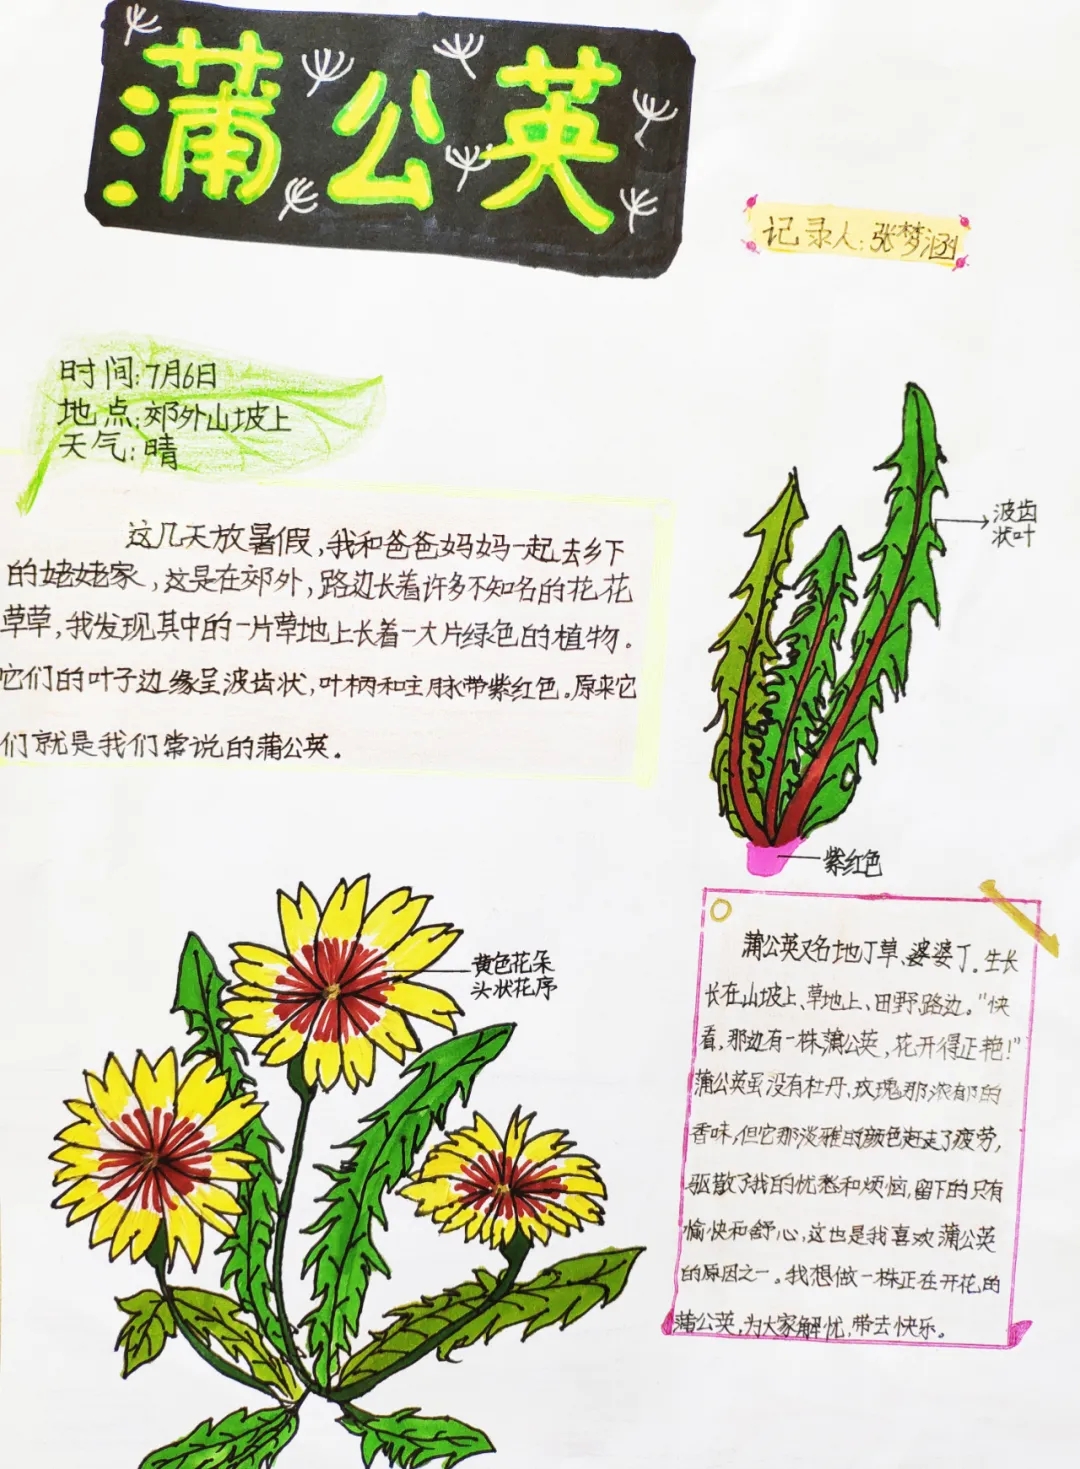 蒲公英
记录人:张梦涵
时间:7月6日
地点:郊外山坡上
天气:晴
这几天放暑假,我和爸爸妈妈一起去乡下
的姥姥家,这是在郊外,路边长着许多不知名的花花
草草,我发现其中的一片草地上长着一大片绿色的植物。
它们的叶子边缘呈波齿状,叶柄和主脉带紫红色。原来它
们就是我们常说的蒲公英。
波齿
状叶
紫红色
黄色花朵
头状花序
蒲公英又名地丁草、婆婆丁。生长
长在山坡上、草地上、田野、路边。“快
看,那边有一株蒲公英,花开得正艳!”
蒲公英虽没有牡丹、玫瑰那浓郁的
香味,但它那淡雅的颜色赶走了疲劳,
驱散了我的忧愁和烦恼,留下的只有
愉快和舒心,这也是我喜欢蒲公英
的原因之一。我想做一株正在开花的
蒲公英,为大家解忧,带去快乐。